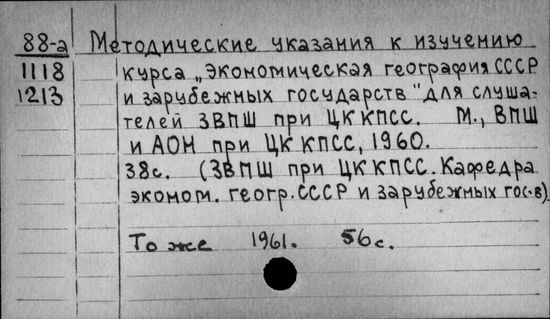 88-а Методические указания к изучению
1118 курса „Экономическая география СССР
1213 и зарубежных государств" для слуша-
телей ЗВПШ при ЦК КПСС. М., ВПШ
и АОН при ЦК КПСС, 1960.
38с. (ЗВПШ при ЦК КПСС. Кафедра
эконом. геогр. СССР и зарубежных гос-в).
То же 1961. 56с.